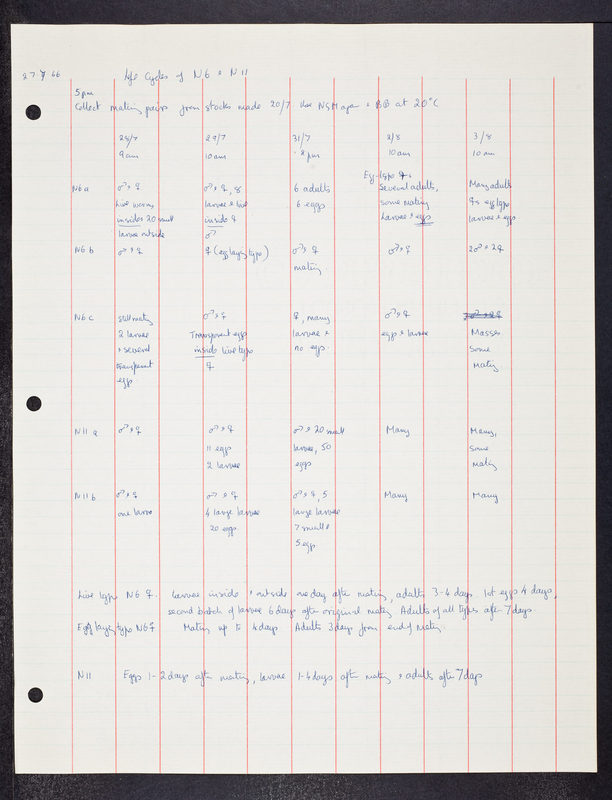 27.7.66 Life Cycles of N6 & N11
5pm
Collect mating pairs from stocks made 20/7 Use NGM agar + BB at 20°C
28/7 29/7 31/7 2/8 3/8
9am 10am 2pm 10am 10am
Egg-type ♀s
N6a ♂ & ♀ ♂ & ♀, 8 6 adults Several adults, Many adults
Live worms larvae & live 6 eggs some mating ♀s egg type
insides 20 small inside ♀ Larvae & eggs larvae & eggs
larvae outside ♂
N6b ♂ & ♀ ♀ (egg laying type) ♂ & ♀ ♂ & ♀ 2♂ & 2♀
mating
N6c still mating ♂ & ♀ ♀, many ♂ & ♀ 2♂ & 2♀
2 larvae Transparent eggs larvae & eggs & larvae Masses
& several inside live type no eggs. Some
transparent ♀ Mating
eggs
N11a ♂ & ♀ ♂ & ♀ ♂ & 20 small Many Many,
11 eggs larvae, 50 some
2 larvae eggs mating
N11b ♂ & ♀ ♂ & ♀ ♂ & ♀, 5 Many Many
one larva 4 large larvae large larvae
20 eggs 7 small &
5 eggs.
Live type N6 ♀. Larvae inside & outside one day after mating, adults 3-4 days 1st eggs 4 days,
second batch of larvae 6 days after original mating Adults of all types after 7 days.
Egg laying type N6 ♀ Mating up to 4 days Adults 3 days from end of mating.
N11 Eggs 1-2 days after mating, larvae 1-4 days after mating & adults after 7 days